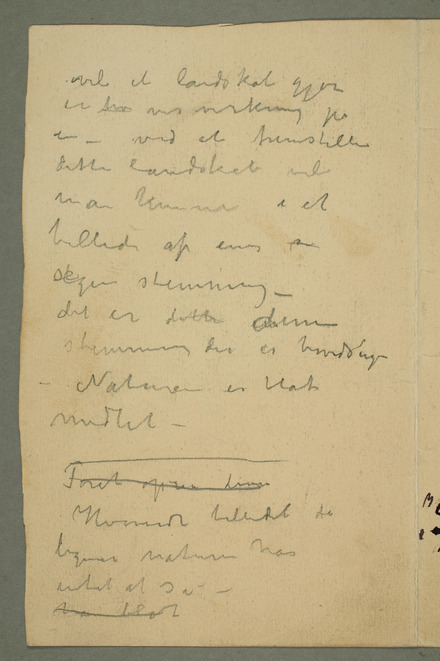 vil et landskab gjør
en vis virkning på
en – ved at fremstille
dette landskab vil
man komme i et
billede af ens
egen stemning –
det er dette denne
stemning der er hovedsagen
– Naturen er blot
midlet –
Hvorvidt billedet da
ligner naturen har
intet at si –
han blot